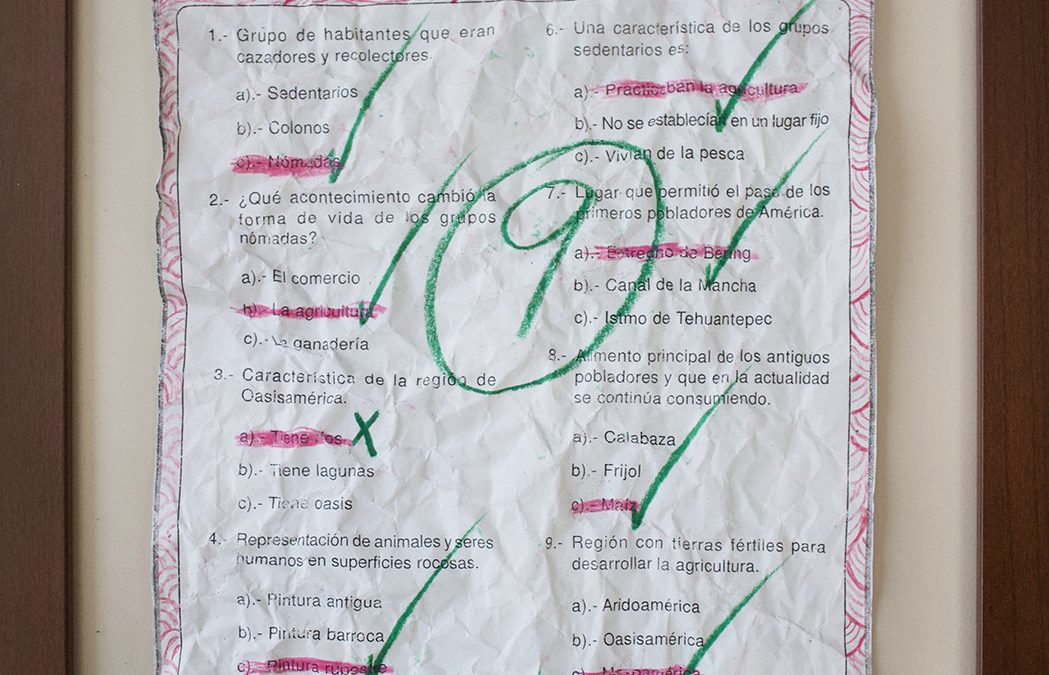 1.- Grupo de habitantes que eran
cazadores y recolectores.
a).- Sedentarios
b).- Colonos
c).- Nómadas
2.- ¿Qué acontecimiento cambió la
forma de vida de los grupos
nómadas?
a).- El comercio
b).- La agricultura
c).- La ganadería
3.- Característica de la región de
Oasisamérica.
a).- Tiene ríos.
b).- Tiene lagunas
c).- Tiene oasis
4.- Representación de animales y seres
humanos en superficies rocosas.
a).- Pintura antigua
b).- Pintura barroca
c).- Pintura rupestre
9
6.- Una característica de los grupos
sedentarios es:
a).- Practicaban la agricultura
b).- No se establecían en un lugar fijo
c).- Vivían de la pesca
7.- Lugar que permitió el paso de los
primeros pobladores de América.
a).- Estrecho de Bering
b).- Canal de la Mancha
c).- Istmo de Tehuantepec
8.- Alimento principal de los antiguos
pobladores y que en la actualidad
se continúa consumiendo.
a).- Calabaza
b).- Frijol
c).- Maíz
9.- Región con tierras fértiles para
desarrollar la agricultura.
a).- Aridoamérica
b).- Oasisamérica
c).- Mesoamérica